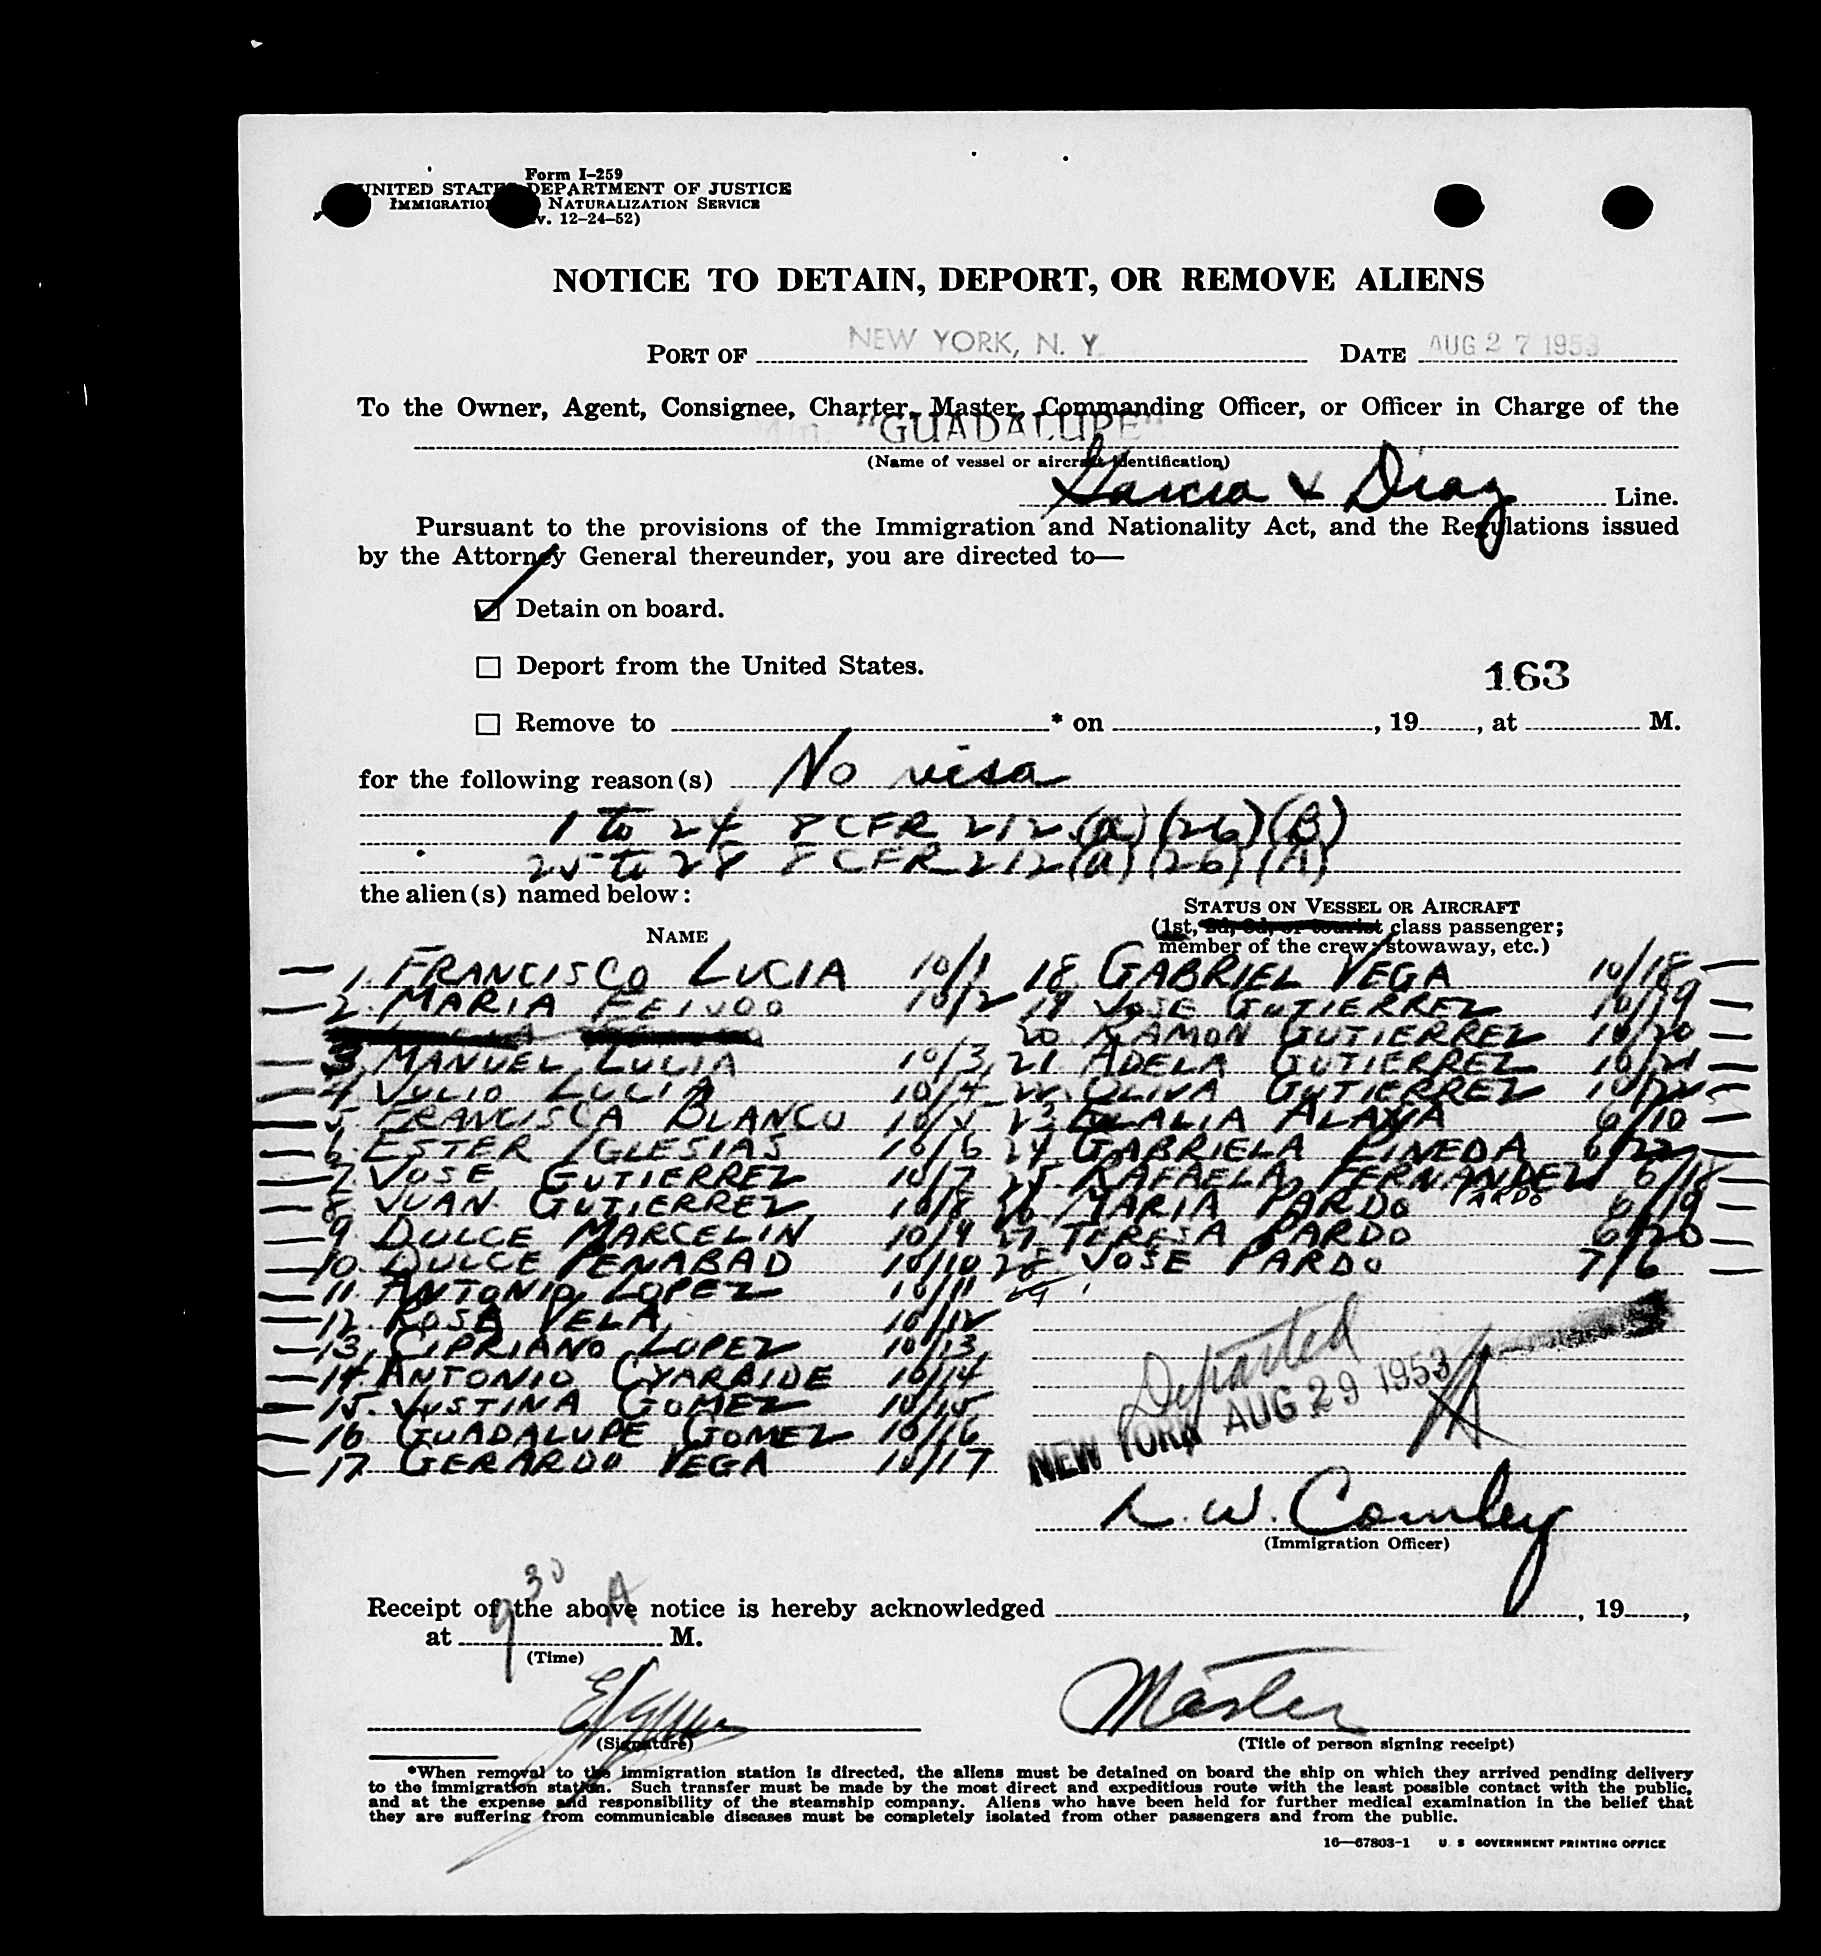 Form I-259
UNITED STATES DEPARTMENT OF JUSTICE
IMMIGRATION NATURALIZATION SERVICE
v. 12-24-52)
NOTICE TO DETAIN, DEPORT, OR REMOVE ALIENS
PORT OF NEW YORK, N. Y. DATE AUG 27 1953
To the Owner, Agent, Consignee, Charter, Master, Commanding Officer, or Officer in Charge of the
"GUADALUPE"
(Name of vessel or aircraft identification)
Garcia & Diaz Line.
Pursuant to the provisions of the Immigration and Nationality Act, and the Regulations issued
by the Attorney General thereunder, you are directed to—
Detain on board.
Deport from the United States.
163
Remove to * on , 19 , at M.
for the following reason(s) No visa
1 to 24 8 CFR 212.(a)(26)(B)
25 to 28 8 CFR 212(a)(26)(A)
the alien(s) named below:
STATUS ON VESSEL OR AIRCRAFT
(1st, 2d, 3d, or tourist class passenger;
member of the crew; stowaway, etc.)
NAME
1. FRANCISCO LUCIA 10/1
2. MARIA FEIJOO 10/2
3 MANUEL LUCIA 10/3
4 JULIO LUCIA 10/4
5. FRANCISCA BLANCO
6. ESTER IGLESIAS 10/6
7. JOSE GUTIERREZ 10/7
8. JUAN GUTIERREZ 10/8
9. DULCE MARCELIN 10/9
10. DULCE PENABAD 10/10
11. ANTONIO LOPEZ 10/11
12. ROSA VELA 10/12
13. CIPRIANO LOPEZ 10/13
14. ANTONIO OYARBIDE 10/14
15. JUSTINA GOMEZ 10/15
16 GUADALUPE GOMEZ 10/16
17. GERARDO VEGA 10/17
18. GABRIEL VEGA 10/18
19 JOSE GUTIERREZ 10/19
20 RAMON GUTIERREZ 10/20
21. ADELA GUTIERREZ 10/21
22. OLIVA GUTIERREZ 10/22
23 ALAXA 6/10
24 GABRIELA PINEDA 6/22
25. RAFAELA FERNANDEZ 6/18
PARDO
26 MARIA PARDO 6/19
27 TERESA PARDO 6/20
28 JOSE PARDO 7/6
Departed
NEW YORK AUG 29 1953
L. W. Comley
(Immigration Officer)
Receipt of the above notice is hereby acknowledged , 19 ,
at 9 30 A M.
(Time)
Master
(Signature)
(Title of person signing receipt)
*When removal to the immigration station is directed, the aliens must be detained on board the ship on which they arrived pending delivery
to the immigration station. Such transfer must be made by the most direct and expeditious route with the least possible contact with the public,
and at the expense and responsibility of the steamship company. Aliens who have been held for further medical examination in the belief that
they are suffering from communicable diseases must be completely isolated from other passengers and from the public.
16—67803-1 U. S GOVERNMENT PRINTING OFFICE